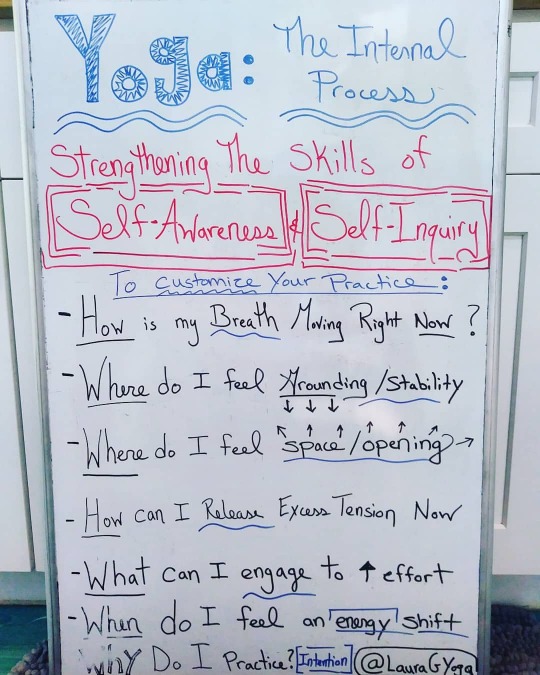 Yoga: The Internal Process
Strengthening The Skills of
Self-Awareness & Self-Inquiry
To Customize Your Practice:
- How is my Breath Moving Right Now?
- Where do I feel Grounding/Stability
↓ ↓ ↓
- Where do I feel space/opening →
- How can I Release Excess Tension Now
- What can I engage to ↑ effort
- When do I feel an energy shift
Why Do I Practice? Intention @LauraGYoga